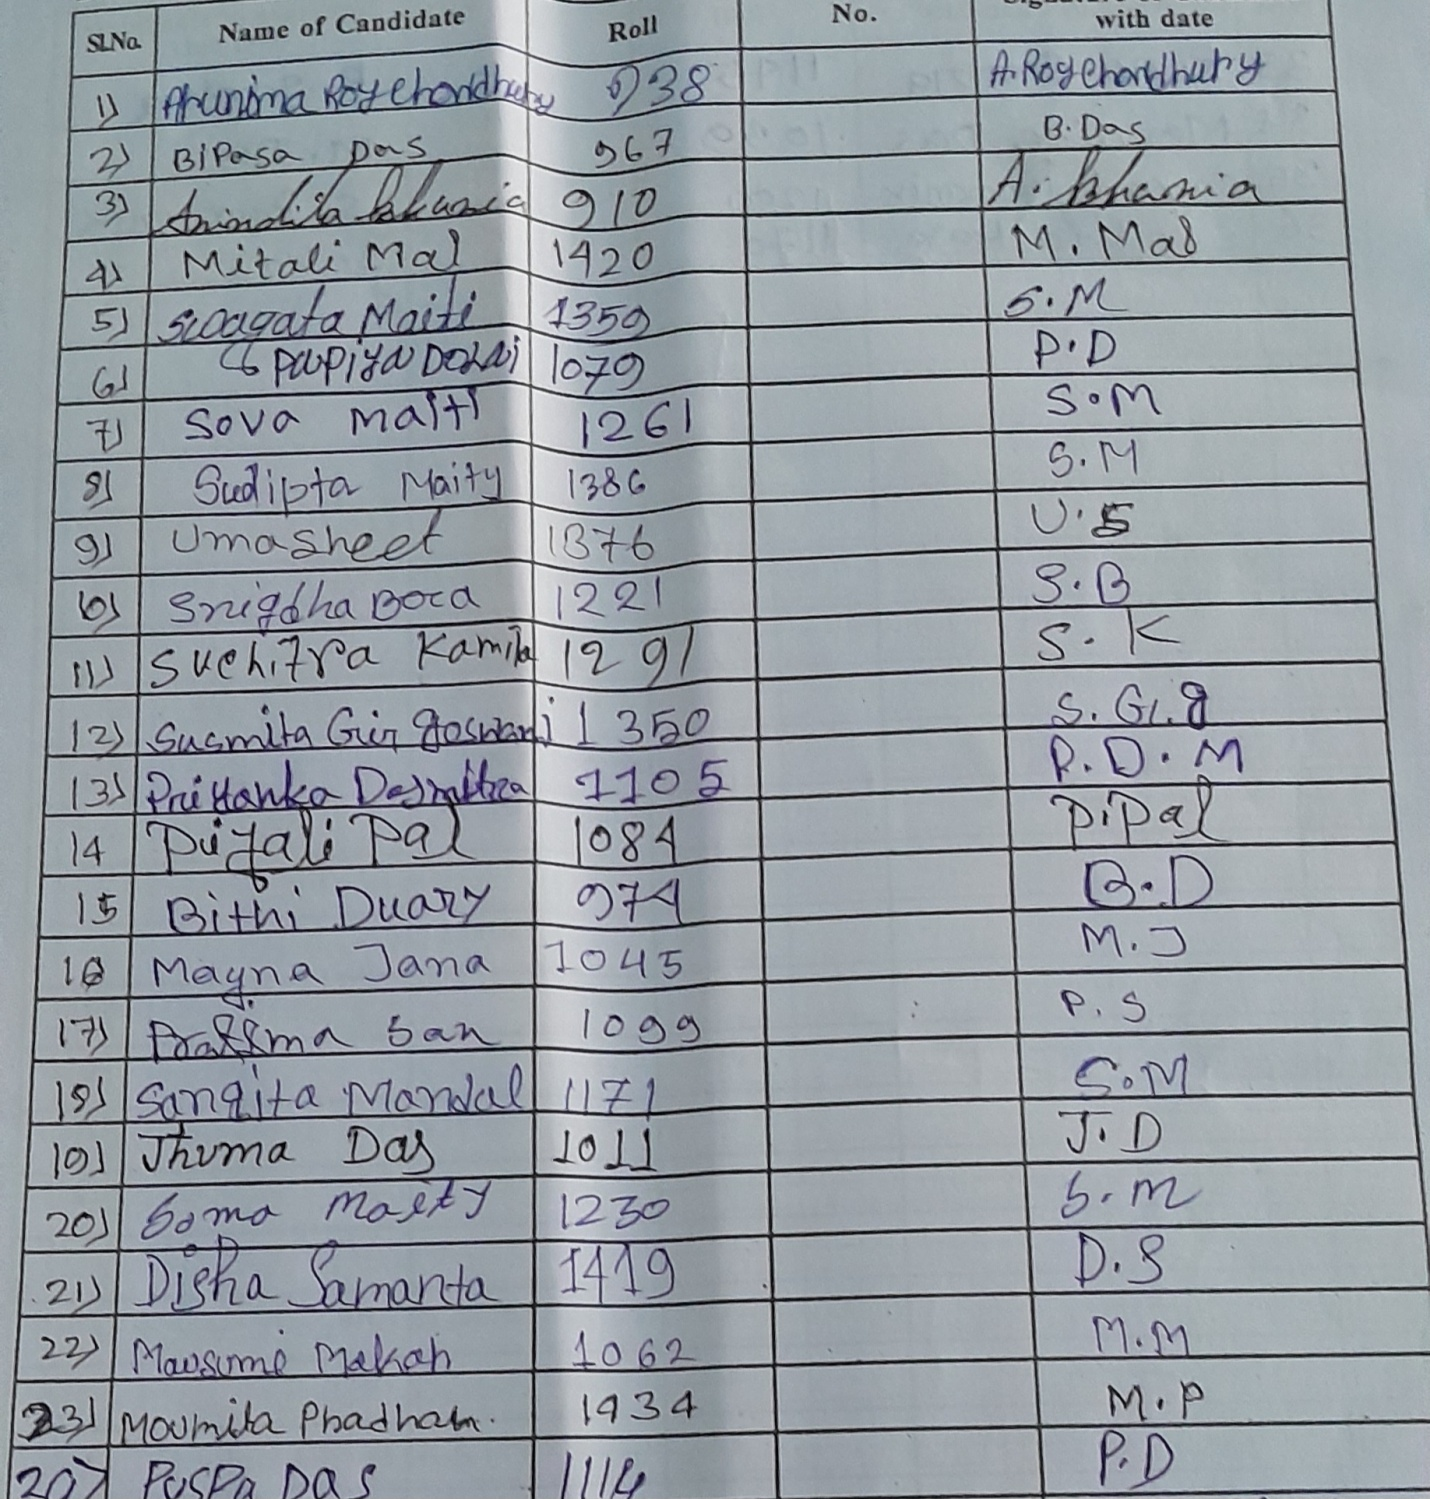 SL.No. Name of Candidate Roll No. with date
1) Arunima Roy Chowdhury 938 A. Roy Chowdhury
2) BiPasa Das 967 B. Das
3) Anindita bhunia 910 A. bhunia
4) Mitali Mal 1420 M. Mal
5) swagata Maiti 1359 S.M
6) PAPiya DOLAi 1079 P.D
7) Sova Maiti 1261 S.M
8) Sudipta Maity 1386 S.M
9) Uma Sheet 1376 U.S
10) Snigdha Bora 1221 S.B
11) Suchitra Kamila 1291 S.K
12) Susmita Giri goswami 1350 S. G. g
13) Priyanka Dasmitra 1105 P.D.M
14 Pijali Pal 1084 P.Pal
15 Bithi Duary 974 B.D
16 Mayna Jana 1045 M.J
17) Pratima San 1099 P.S
18) Sangita Mandal 1171 S.M
19) Jhuma Das 1011 J.D
20) Soma Maity 1230 S.M
21) Disha Samanta 1419 D.S
22) Mousumi Makah 1062 M.M
23) Moumita Pradhan. 1434 M.P
207 PUSPA DAS 1114 P.D